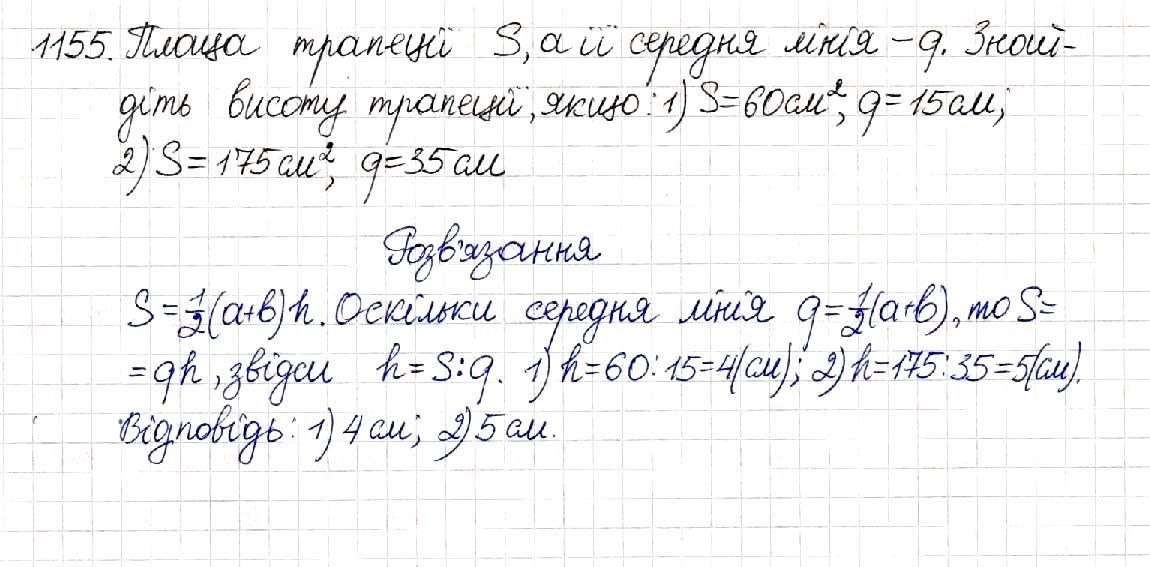 1155. Площа трапеції S, а її середня лінія – q. Знай-
діть висоту трапеції, якщо: 1) S=60см², q=15см;
2) S=175см², q=35см
Розв'язання
S=½(a+b)h. Оскільки середня лінія q=½(a+b), то S=
=qh, звідси h=S:q. 1) h=60:15=4(см); 2) h=175:35=5(см).
Відповідь: 1) 4 см; 2) 5 см.